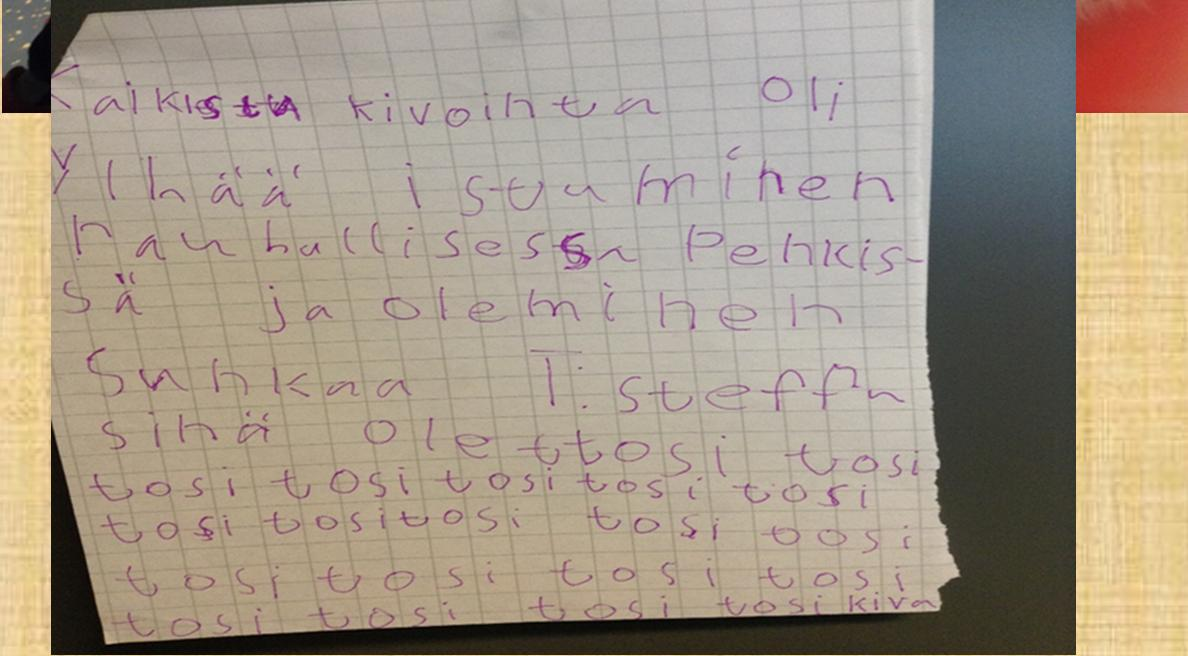 Kaikista kivointa Oli
Ylhää istuminen
rauhallisessa Penkis-
sä ja oleminen
Sunkaa T. steffa
sinä olet tosi tosi
tosi tosi tosi tosi tosi
tosi tosi tosi tosi tosi
tosi tosi tosi tosi
tosi tosi tosi tosi kiva